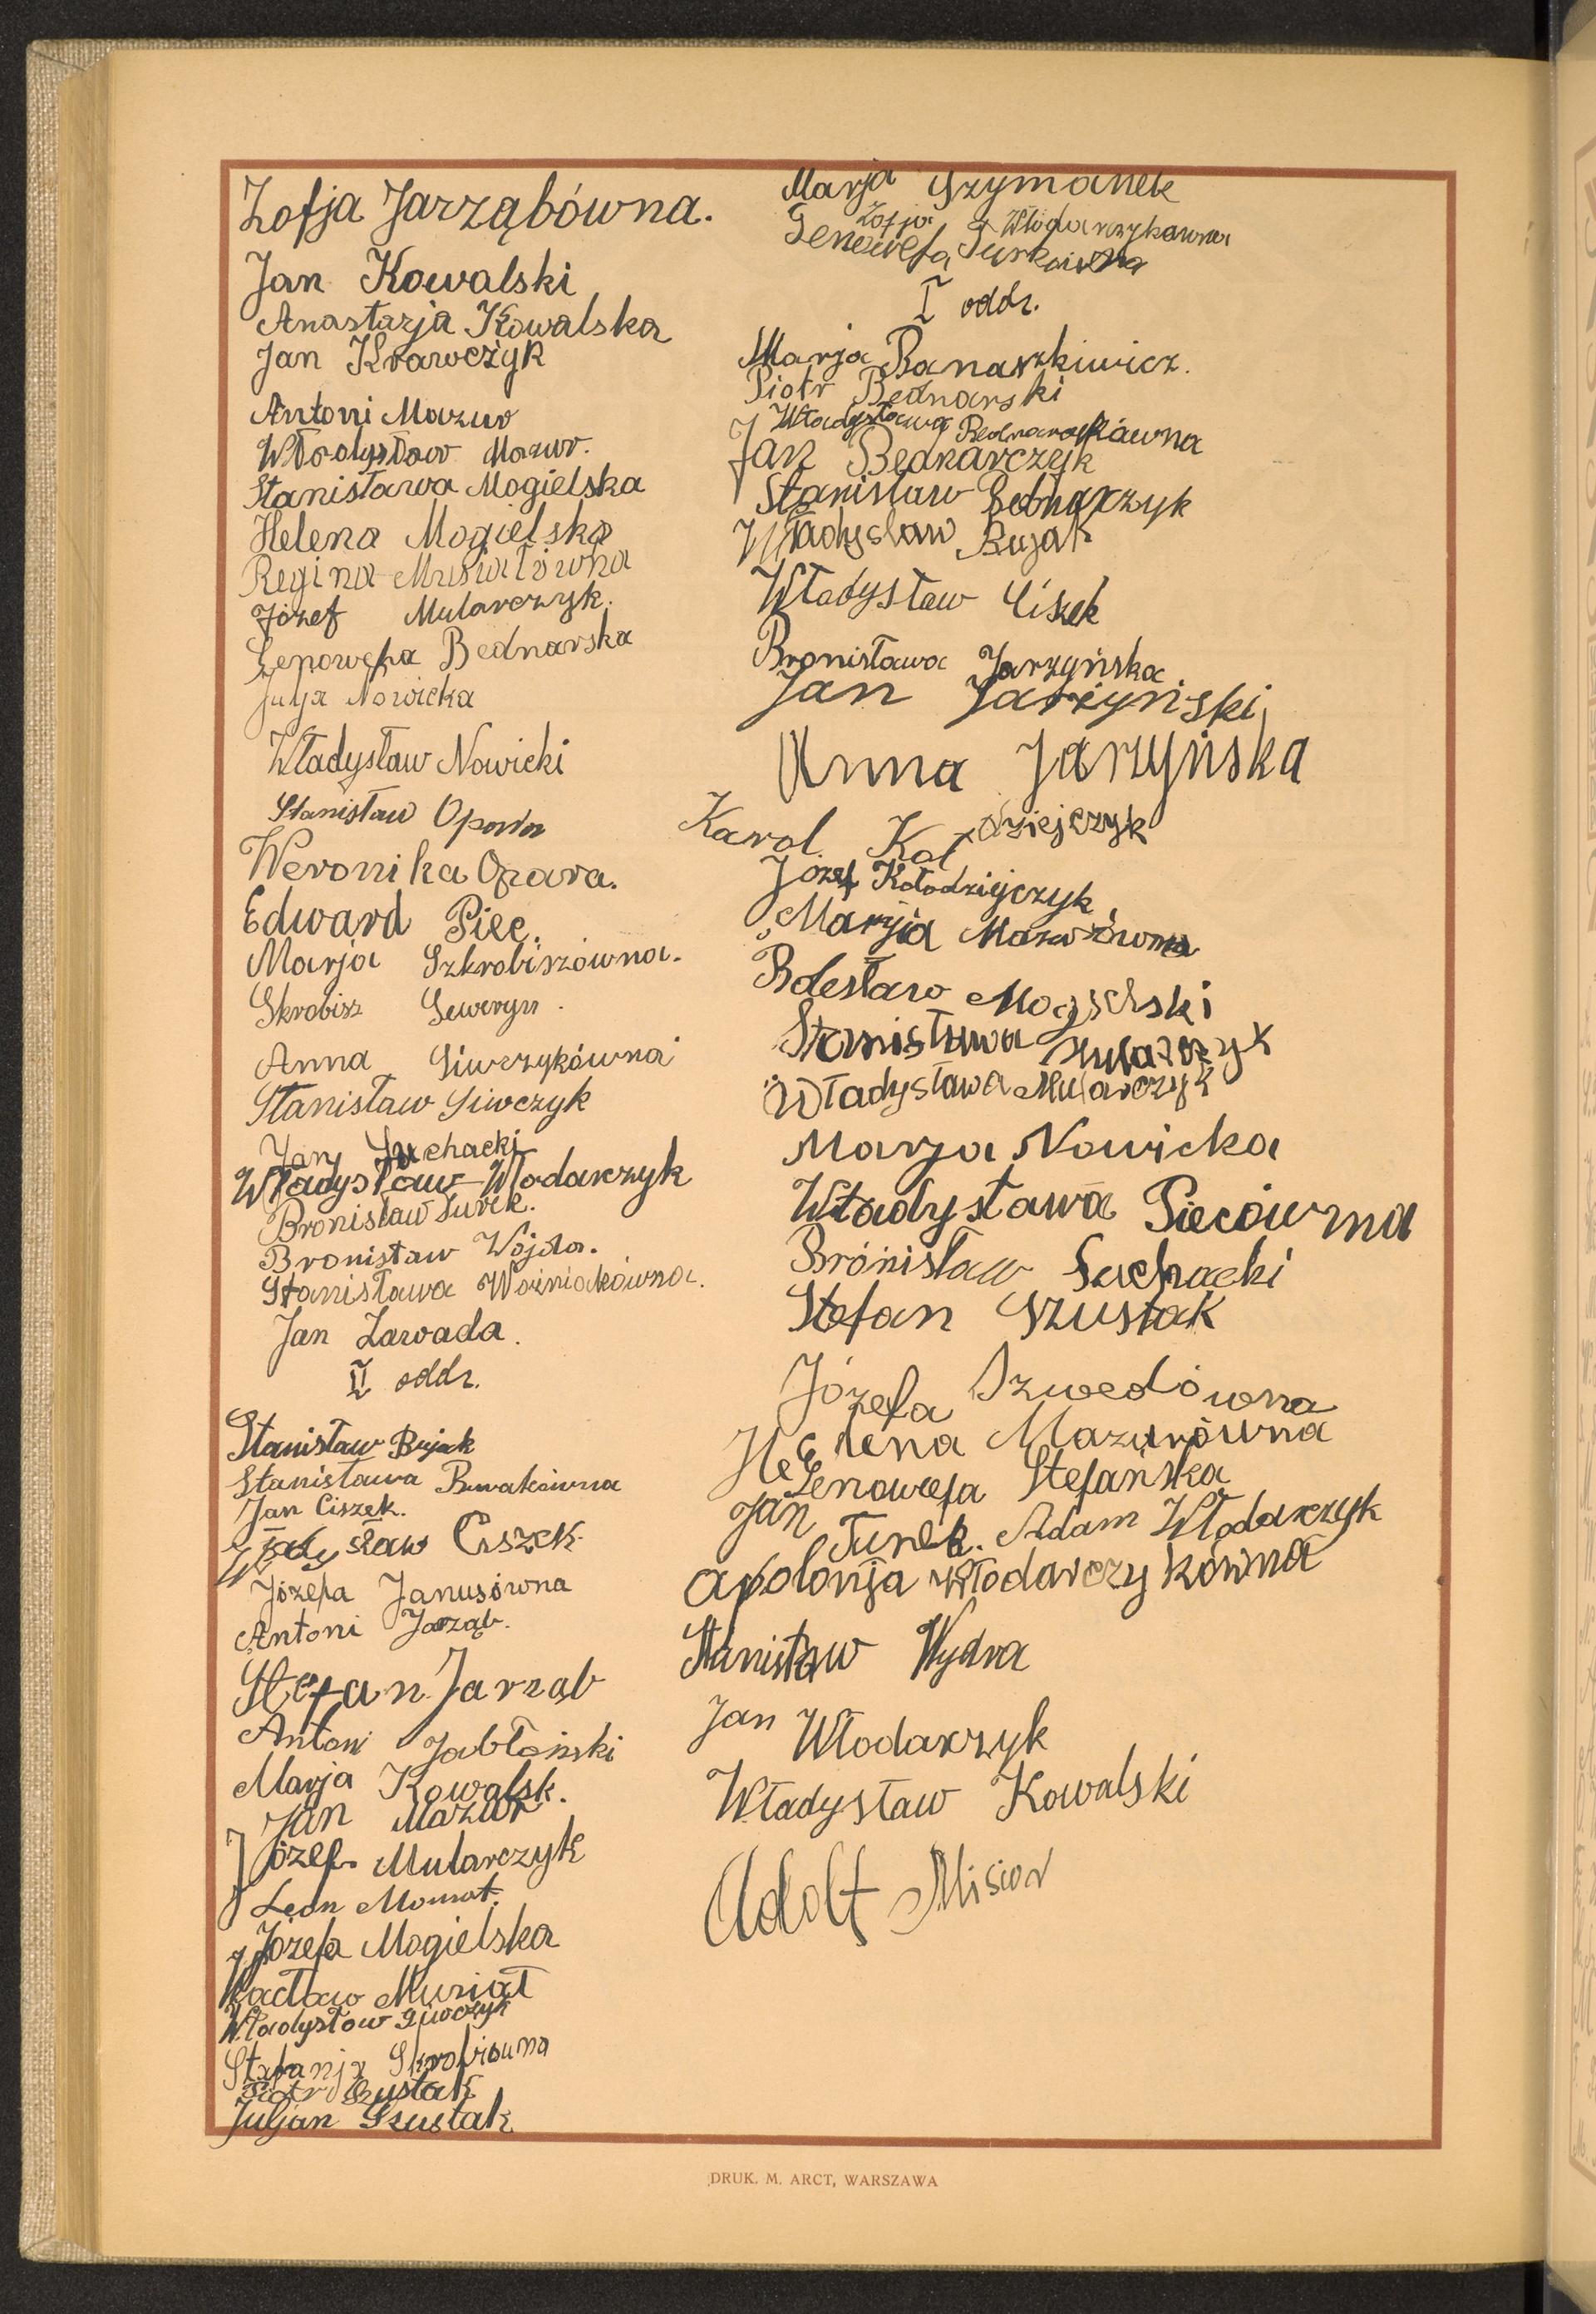 Zofja Jarząbówna.
Jan Kowalski
Anastazja Kowalska
Jan Krawczyk
Antoni Mazur
Władysław Mazur.
Stanisława Mogielska
Helena Mogielska
Regina Musiałówna
Józef Mularczyk.
Genowefa Bednarska
Julja Nowicka
Władysław Nowicki
Stanisław Opara
Weronika Opara.
Edward Piec.
Marja Szkrobiszówna.
Skrobisz Seweryn.
Anna Siwczykówna
Stanisław Siwczyk
Jan Suchacki
Władysław Włodarczyk
Bronisław Turek.
Bronisław Wojda.
Stanisława Woźniakówna.
Jan Zawada.
II oddz.
Stanisław Bujak
Stanisława
Jan Ciszek.
Władysław Ciszek
Józefa Janusówna
Antoni Jarząb.
Stefan Jarząb
Antoni Jabłoński
Marja Kowalsk.
Jan Mazur
Józef Mularczyk
Leon
Józefa Mogielska
Wacław Musiał
Władysław Siwczyk
Stefanja
Piotr Szustak
Juljan Szustak
Marja Szymanek
Zofja Włodarczykówna
Genowefa Turkówna
I oddz.
Marja Banaszkiwicz.
Piotr Bednarski
Władysława
Jan Bednarczyk
Stanisław Bednarczyk
Władysław Bujak
Władysław Ciszek
Bronisława Jarzyńska
Jan Jarzyński
Anna Jarzyńska
Karol Kołodziejczyk
Józef Kołodziejczyk
Marjia Mazurówna
Bolesław Mogielski
Stanisława Mularczyk
Władysława Mularczyk
Marja Nowicka
Władysława Piecówna
Bronisław Suchacki
Stefan Szustak
Józefa Szwedówna
Helena Mazurówna
Genowefa Stefańska
Jan Turek. Adam Włodarczyk
Apolonja Włodarczykówna
Stanisław Wydra
Jan Włodarczyk
Władysław Kowalski
Adolf Misior
DRUK. M. ARCT, WARSZAWA